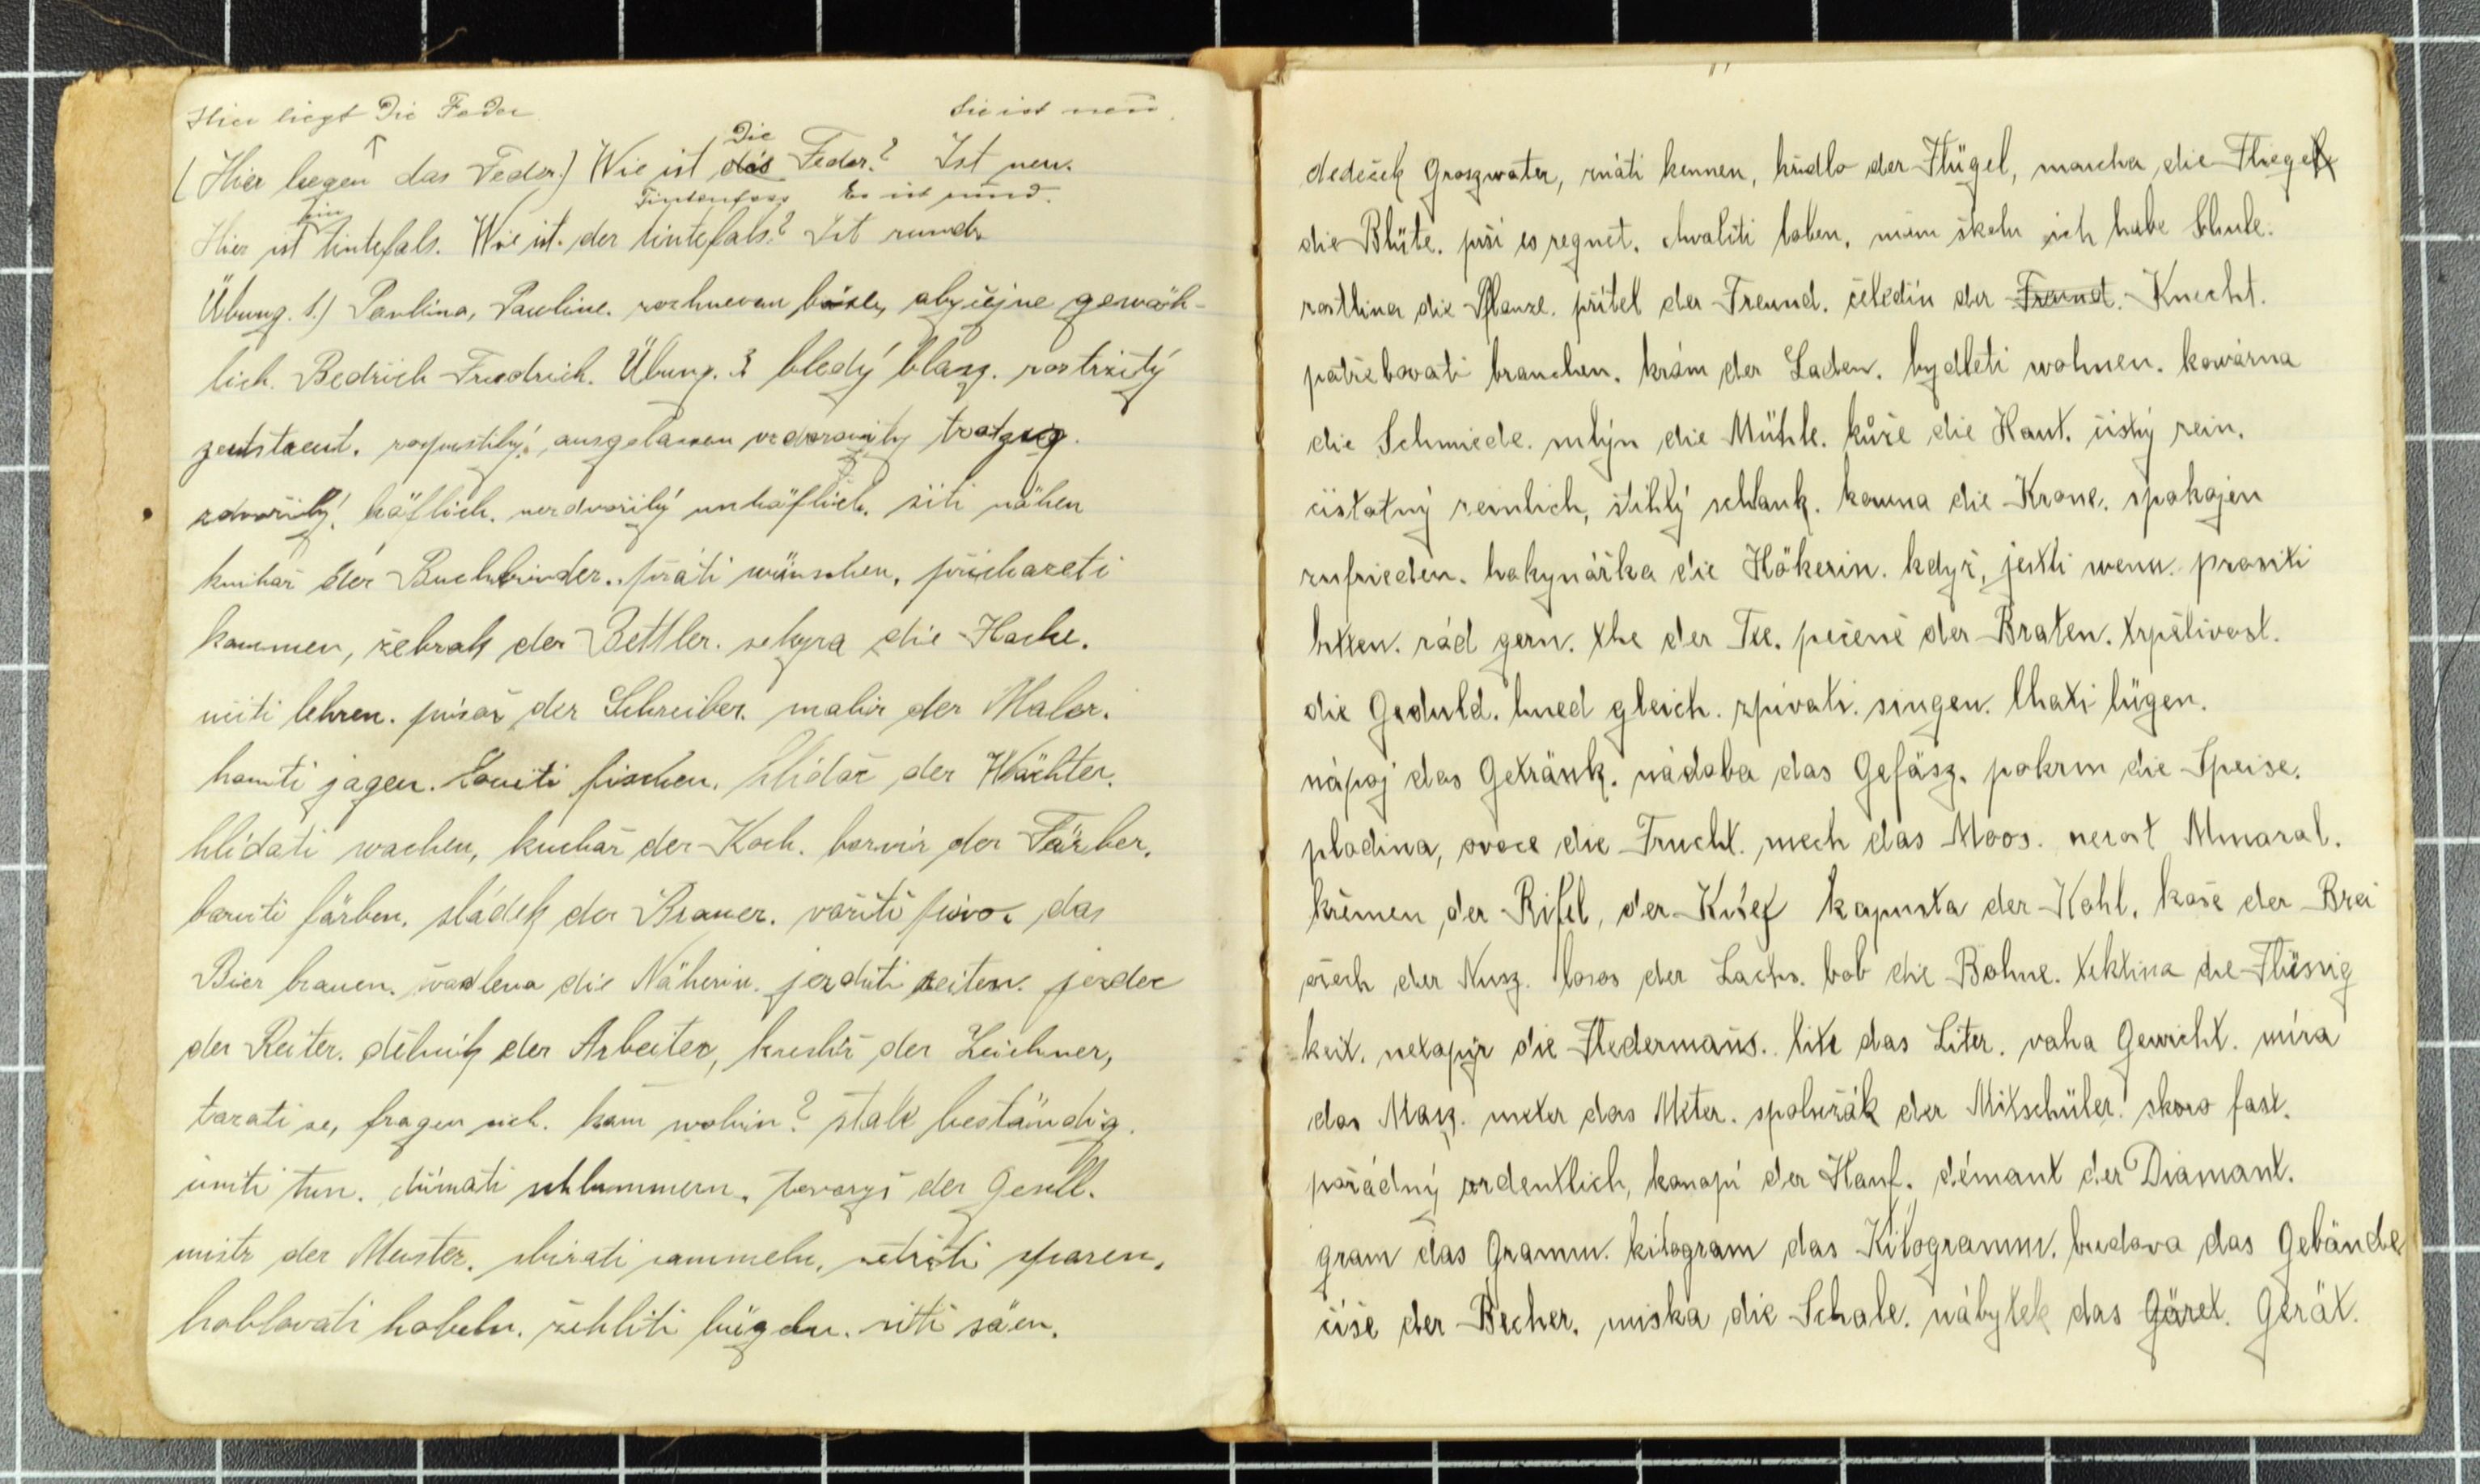 Hier liegt Die Feder Sie ist neu.
(Hier liegen das Feder.) Wie ist das Die Feder? Ist neu.
ein Tintenfass Es ist rund.
Hier ist tintefals. Wie ist der tintefals? Ist rund.
Übung. 1.) Pavlina, Pauline. rozhnevan böse, obyčejne gewöh-
lich. Bedřich Friedrich. Übung. 3 bledý blasz. roztržitý
zerstreut. rozpustilý, ausgelassen vzdorovity trotzig.
zdvořilý, höflich. nezdvořilý unhöflich. šíti nähen
knihař der Buchbinder. přáti wünschen, přicházeti
kommen, žebrak der Bettler. sekyra die Hacke.
učiti lehren. pisař der Schreiber. malíř der Maler.
honiti jagen. Loviti fischen. hlídač der Wächter.
hlídati wachen, kuchař der Koch. barvíř der Färber.
barviti färben. sládek der Brauer. vařiti pivo. das
Bier brauen. švadlena die Näherin. jezditi reiten. jezdec
der Reiter. dělník der Arbeiter, kreslíř der Zeichner,
tazati se, fragen sich. kam wohin? stale beständig.
činiti tun. dřímati schlummern. tovaryš der Gesell.
mistr der Meister. sbírati sammeln. šetřiti sparen.
hoblovati hobeln. žehliti bügeln. síti säen.
dedeček Groszvater, znáti kennen, křidlo der Flügel, moucha die Fliege
die Blüte. prší es regnet. chvaliti loben. mám školu ich habe Schule.
rostlina die Pflanze. přítel der Freund. čeledín der Freund. Knecht.
potřebovati brauchen. krám der Laden. bydleti wohnen. kovárna
die Schmiede. mlýn die Mühle. kůže die Haut. čistý rein.
čistotný reinlich, štíhlý schlank. koruna die Krone. spokojen
zufrieden. hokynářka die Hökerin. když, jestli wenn. prositi
bitten. rád gern. the der Tee. pečeně der Braten. trpělivost.
die Geduld. hned gleich. zpívati. singen. lhati lügen.
nápoj das Getränk. nádoba das Gefäsz. pokrm die Speise.
plodina, ovoce die Frucht. mech das Moos. nerost Mmaral.
křemen der Kohl. kaše der Brei
ořech der Nusz. losos der Lachs. bob die Bohne. tektina die Flüssig
keit. netopýr die Fledermaus. litr das Liter. vaha Gewicht. míra
das Masz. meter das Meter. spolužák der Mitschüler. skoro fast.
pořádný ordentlich, konopí der Hanf. démant der Diamant.
gram das Gramm. kilogram das Kilogramm. budova das Gebäude
číše der Becher. miska die Schale. nábytek das Göret. Gerät.